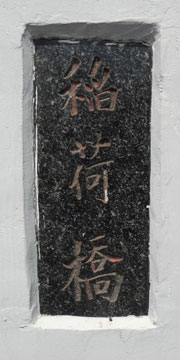 稲荷橋